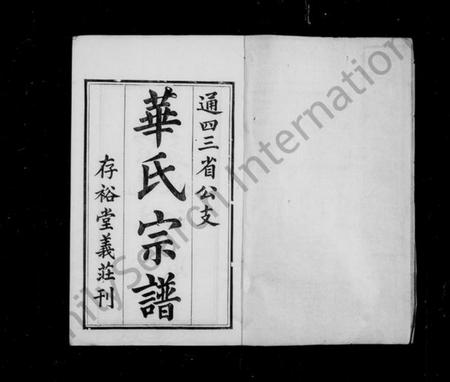 通四三省公支
華氏宗譜
存裕堂義莊刊
FamilySearch International